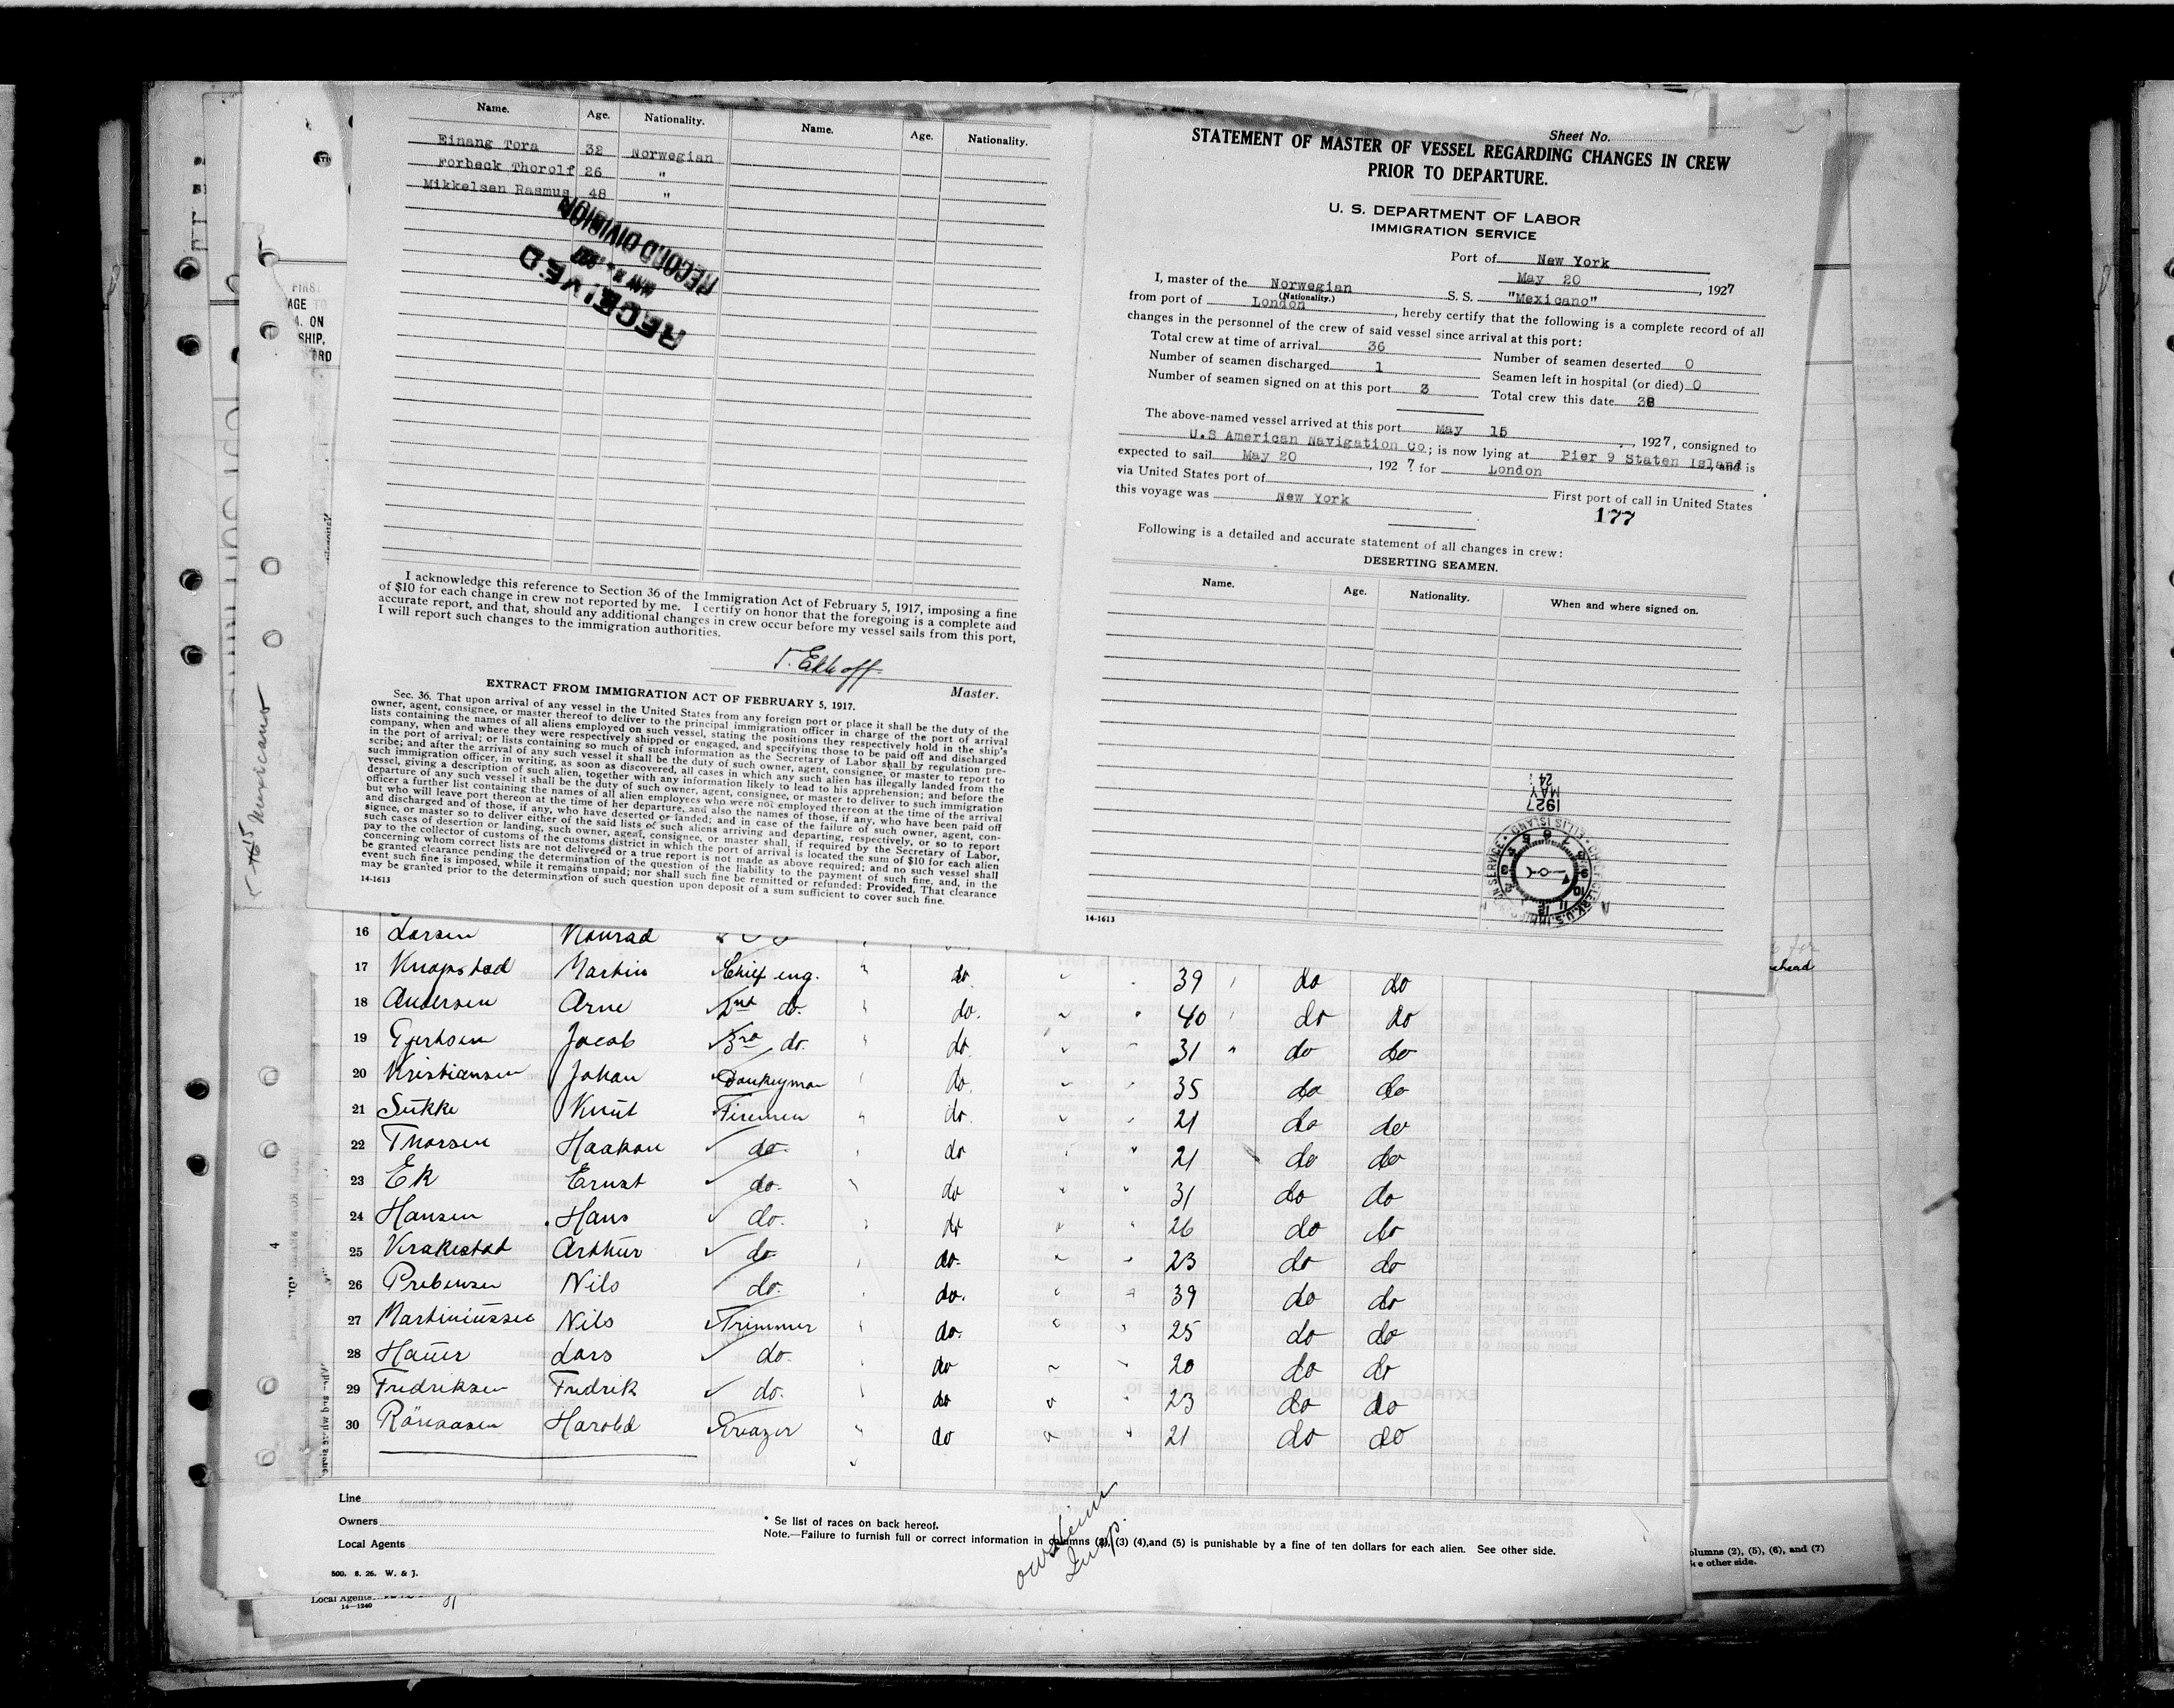 Name. Age. Nationality. Name. Age. Nationality.
Einang Tora 32 Norwegian
Forbeck Thorolf 26 "
Mikkelsen Rasmus 48 "
RECEIVED
MAY 24 1927
RECORD DIVISION
I acknowledge this reference to Section 36 of the Immigration Act of February 5, 1917, imposing a fine
of $10 for each change in crew not reported by me. I certify on honor that the foregoing is a complete and
accurate report, and that, should any additional changes in crew occur before my vessel sails from this port,
I will report such changes to the immigration authorities.
T. Ekhoff
Master.
EXTRACT FROM IMMIGRATION ACT OF FEBRUARY 5, 1917.
Sec. 36. That upon arrival of any vessel in the United States from any foreign port or place it shall be the duty of the
owner, agent, consignee, or master thereof to deliver to the principal immigration officer in charge of the port of arrival
lists containing the names of all aliens employed on such vessel, stating the positions they respectively hold in the ship's
company, when and where they were respectively shipped or engaged, and specifying those to be paid off and discharged
in the port of arrival; or lists containing so much of such information as the Secretary of Labor shall by regulation pre-
scribe; and after the arrival of any such vessel it shall be the duty of such owner, agent, consignee, or master to report to
such immigration officer, in writing, as soon as discovered, all cases in which any such alien has illegally landed from the
vessel, giving a description of such alien, together with any information likely to lead to his apprehension; and before the
departure of any such vessel it shall be the duty of such owner, agent, consignee, or master to deliver to such immigration
officer a further list containing the names of all alien employees who were not employed thereon at the time of the arrival
but who will leave port thereon at the time of her departure, and also the names of those, if any, who have been paid off
and discharged and of those, if any, who have deserted or landed; and in case of the failure of such owner, agent, con-
signee, or master so to deliver either of the said lists of such aliens arriving and departing, respectively, or so to report
such cases of desertion or landing, such owner, agent, consignee, or master shall, if required by the Secretary of Labor,
pay to the collector of customs of the customs district in which the port of arrival is located the sum of $10 for each alien
concerning whom correct lists are not delivered or a true report is not made as above required; and no such vessel shall
be granted clearance pending the determination of the question of the liability to the payment of such fine, and, in the
event such fine is imposed, while it remains unpaid; nor shall such fine be remitted or refunded: Provided, That clearance
may be granted prior to the determination of such question upon deposit of a sum sufficient to cover such fine.
14-1613
Sheet No.
STATEMENT OF MASTER OF VESSEL REGARDING CHANGES IN CREW
PRIOR TO DEPARTURE.
U. S. DEPARTMENT OF LABOR
IMMIGRATION SERVICE
Port of New York
May 20, 1927
I, master of the Norwegian S. S. "Mexicano"
(Nationality.)
from port of London, hereby certify that the following is a complete record of all
changes in the personnel of the crew of said vessel since arrival at this port:
Total crew at time of arrival 36
Number of seamen deserted 0
Number of seamen discharged 1
Seamen left in hospital (or died) 0
Number of seamen signed on at this port 3
Total crew this date 38
The above-named vessel arrived at this port May 15, 1927, consigned to
U.S American Navigation Co; is now lying at Pier 9 Staten Island, and is
expected to sail May 20, 1927 for London
via United States port of
First port of call in United States
this voyage was New York
177
Following is a detailed and accurate statement of all changes in crew:
DESERTING SEAMEN.
Name. Age. Nationality. When and where signed on.
1927
MAY
24
14-1613
Mexicano
16 Larsen Konrad
17 Knapstad Martin Chief eng. " do. 39 do do
18 Andersen Arne 2nd do. " do. 40 do do
19 Gjertsen Jacob 3rd do. " do. 31 " do do
20 Kristiansen Johan Donkeyman do. 35 do do
21 Sukke Knut Firemen " do. 21 do do
22 Thorsen Haakon do. do 21 do do
23 Ek Ernst do. do 31 do do
24 Hansen Hans do. do 26 do do
25 Krakestad Arthur do do. 23 do do
26 Prebensen Nils do. do. 39 do do
27 Martiniussen Nils Trimmer do. 25 do do
28 Hauer Lars do. do 20 do do
29 Fredriksen Fredrik do. do 23 do do
30 Harold do 21 do do
Line
Owners
Local Agents
* Se list of races on back hereof.
Note.—Failure to furnish full or correct information in columns (2), (3) (4),and (5) is punishable by a fine of ten dollars for each alien. See other side.
500. 8. 26. W. & J.
Local Agents
14—1240
columns (2), (5), (6), and (7)
other side.